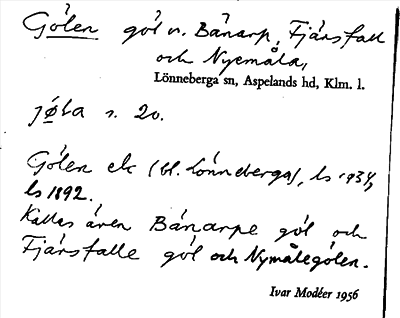 Gölen göl n. Bänarp, Fjärsfall
och Nyemåla,
Lönneberga sn, Aspelands hd, Klm. l.
s. 20.
Gölen ek (bl. Lönneberga), ls 1934,
ls 1892.
Kallas även Bänarpe göl och
Fjärsfalle göl och Nymålegölen.
Ivar Modéer 1956